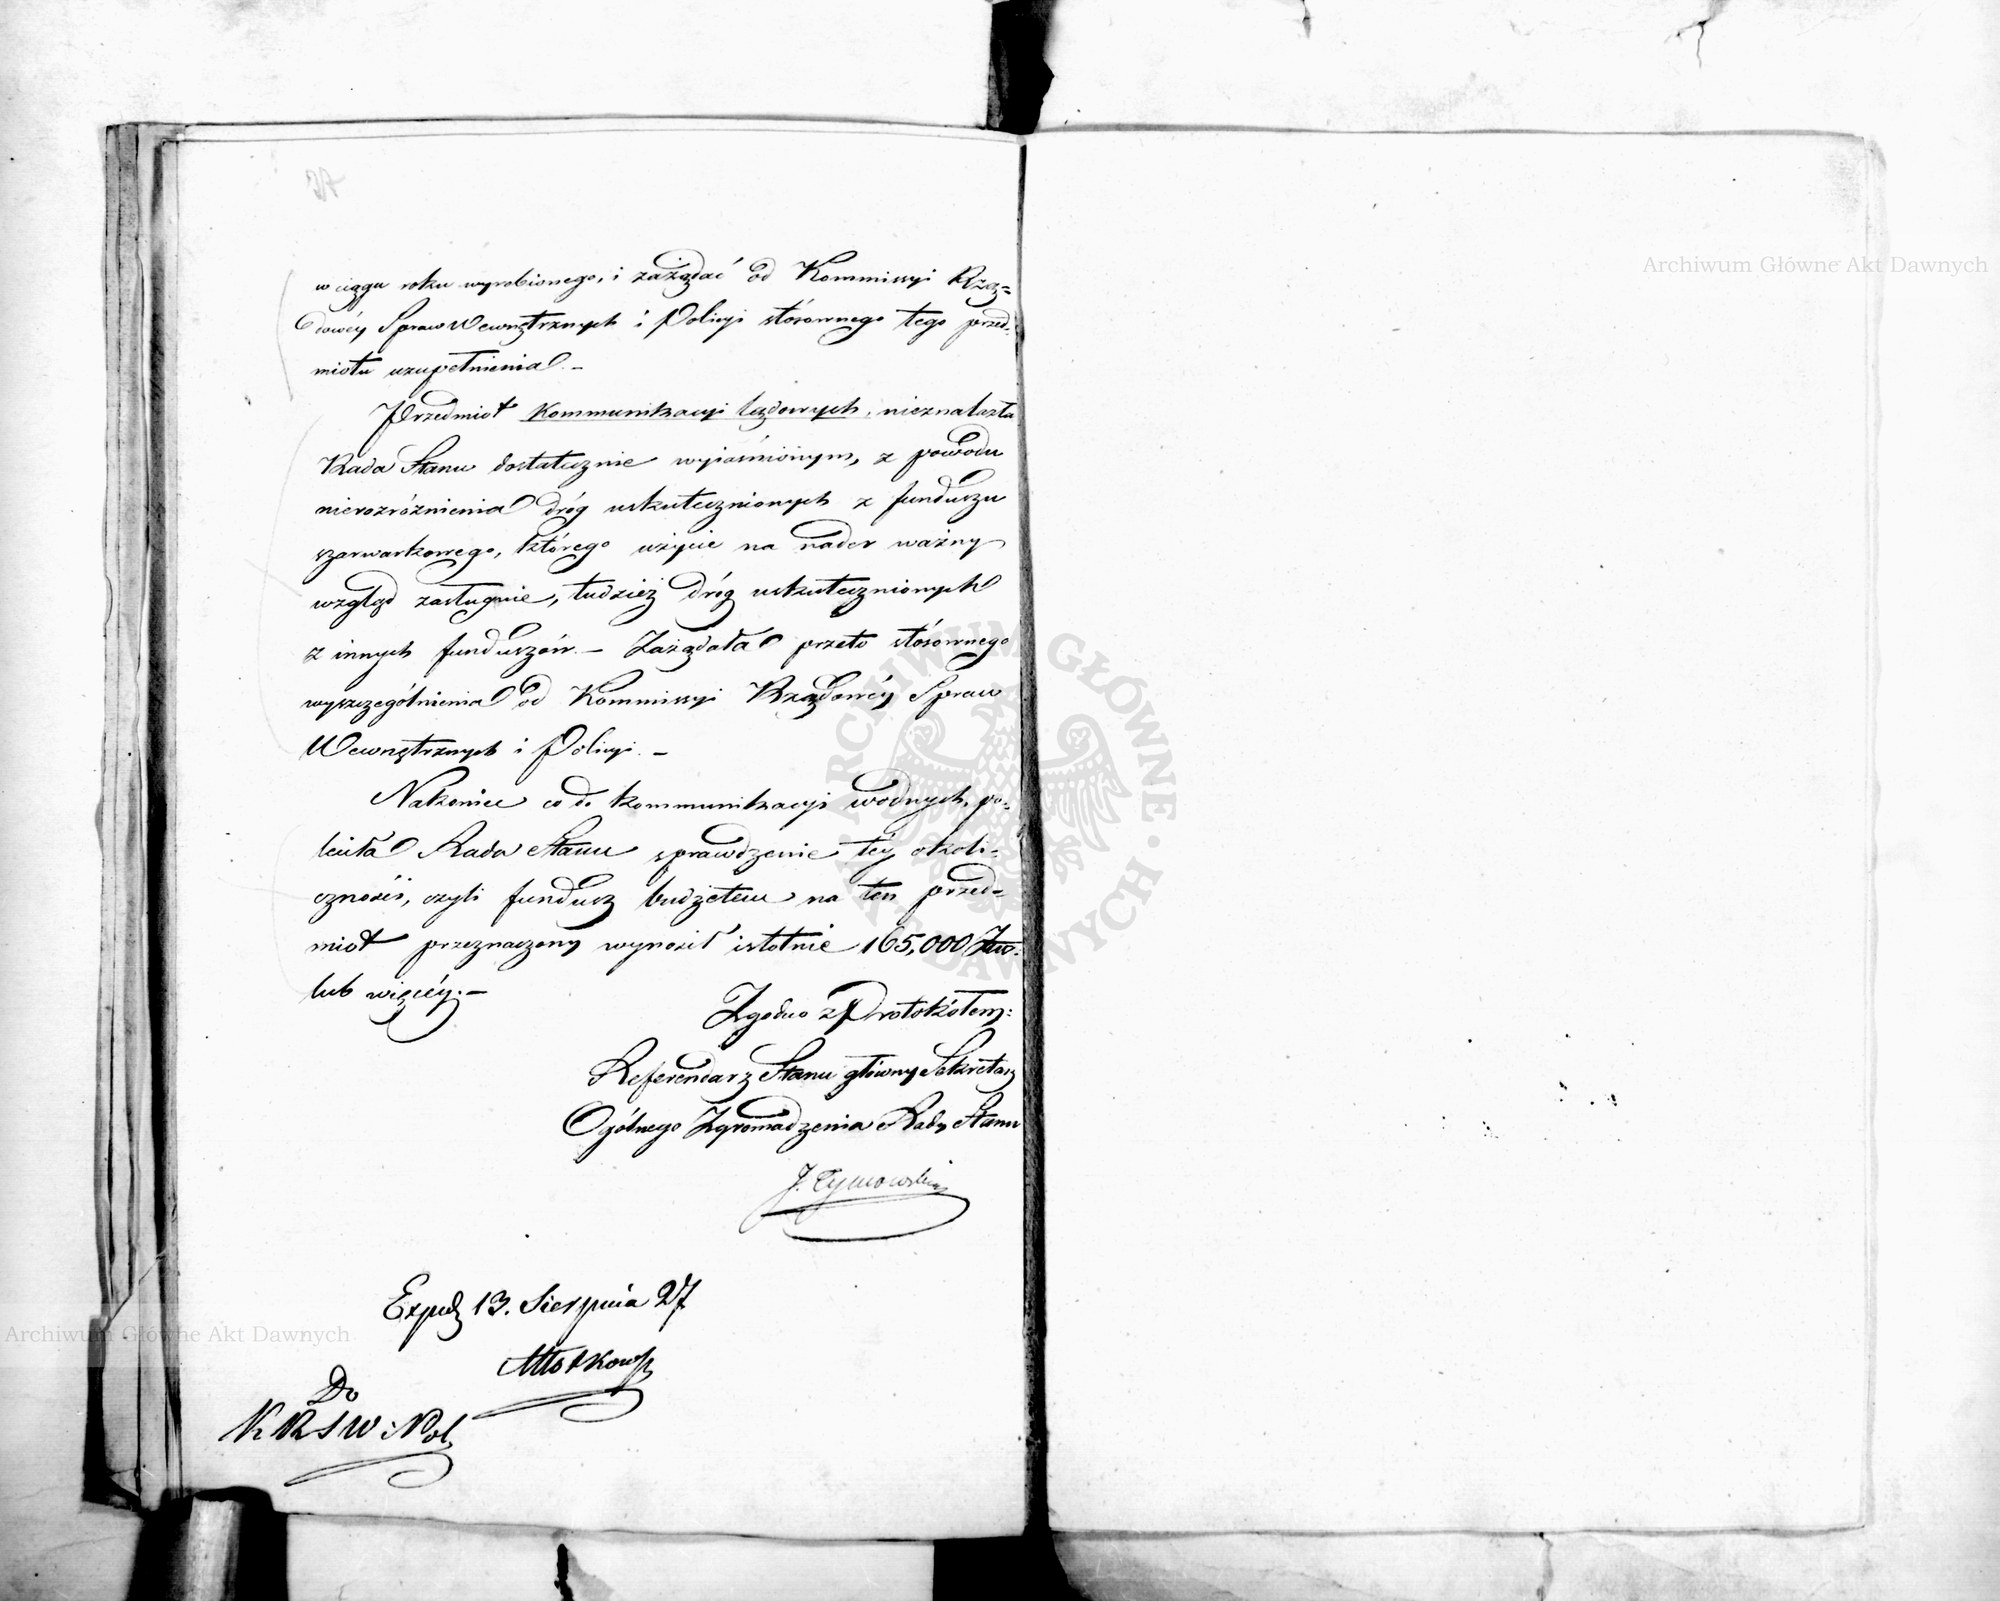 w ciągu roku wyrobionego, i zażądać od Kommissyi Rzą=
dowéy Spraw Wewnętrznych i Policyi stósownego tego przed=
miotu uzupełnienia. –
Przedmiot Kommunikacyi lądowych, nieznalazła
Rada Stanu dostatecznie wyiaśnionym, z powodu
nierozróżnienia dróg uskutecznionych z funduszu
szarwarkowego, którego użycie na nader ważny
wzgląd zasługuie, tudzież dróg uskutecznionych
z innych funduszów. – Zażądała przeto stósownego
wyszczególnienia od Kommissyi Rządowéy Spraw
Wewnętrznych i Policyi. –
Nakoniec co do kommunikacyi wodnych, po=
leciła Rada Stanu sprawdzenie téy okoli=
czności, czyli fundusz budżetem na ten przed=
miot przeznaczony wynosił istotnie 165,000 Złp.
lub więcéy. –
Zgodno z Protokółem:
Referendarz Stanu główny Sekretarz
Ogólnego Zgromadzenia Rady Stanu
J. Tymowski
13. Sierpnia 27
Do
KRSW i Pol
Archiwum Główne Akt Dawnych
Archiwum Główne Akt Dawnych
ARCHIWUM GŁÓWNE AKT DAWNYCH